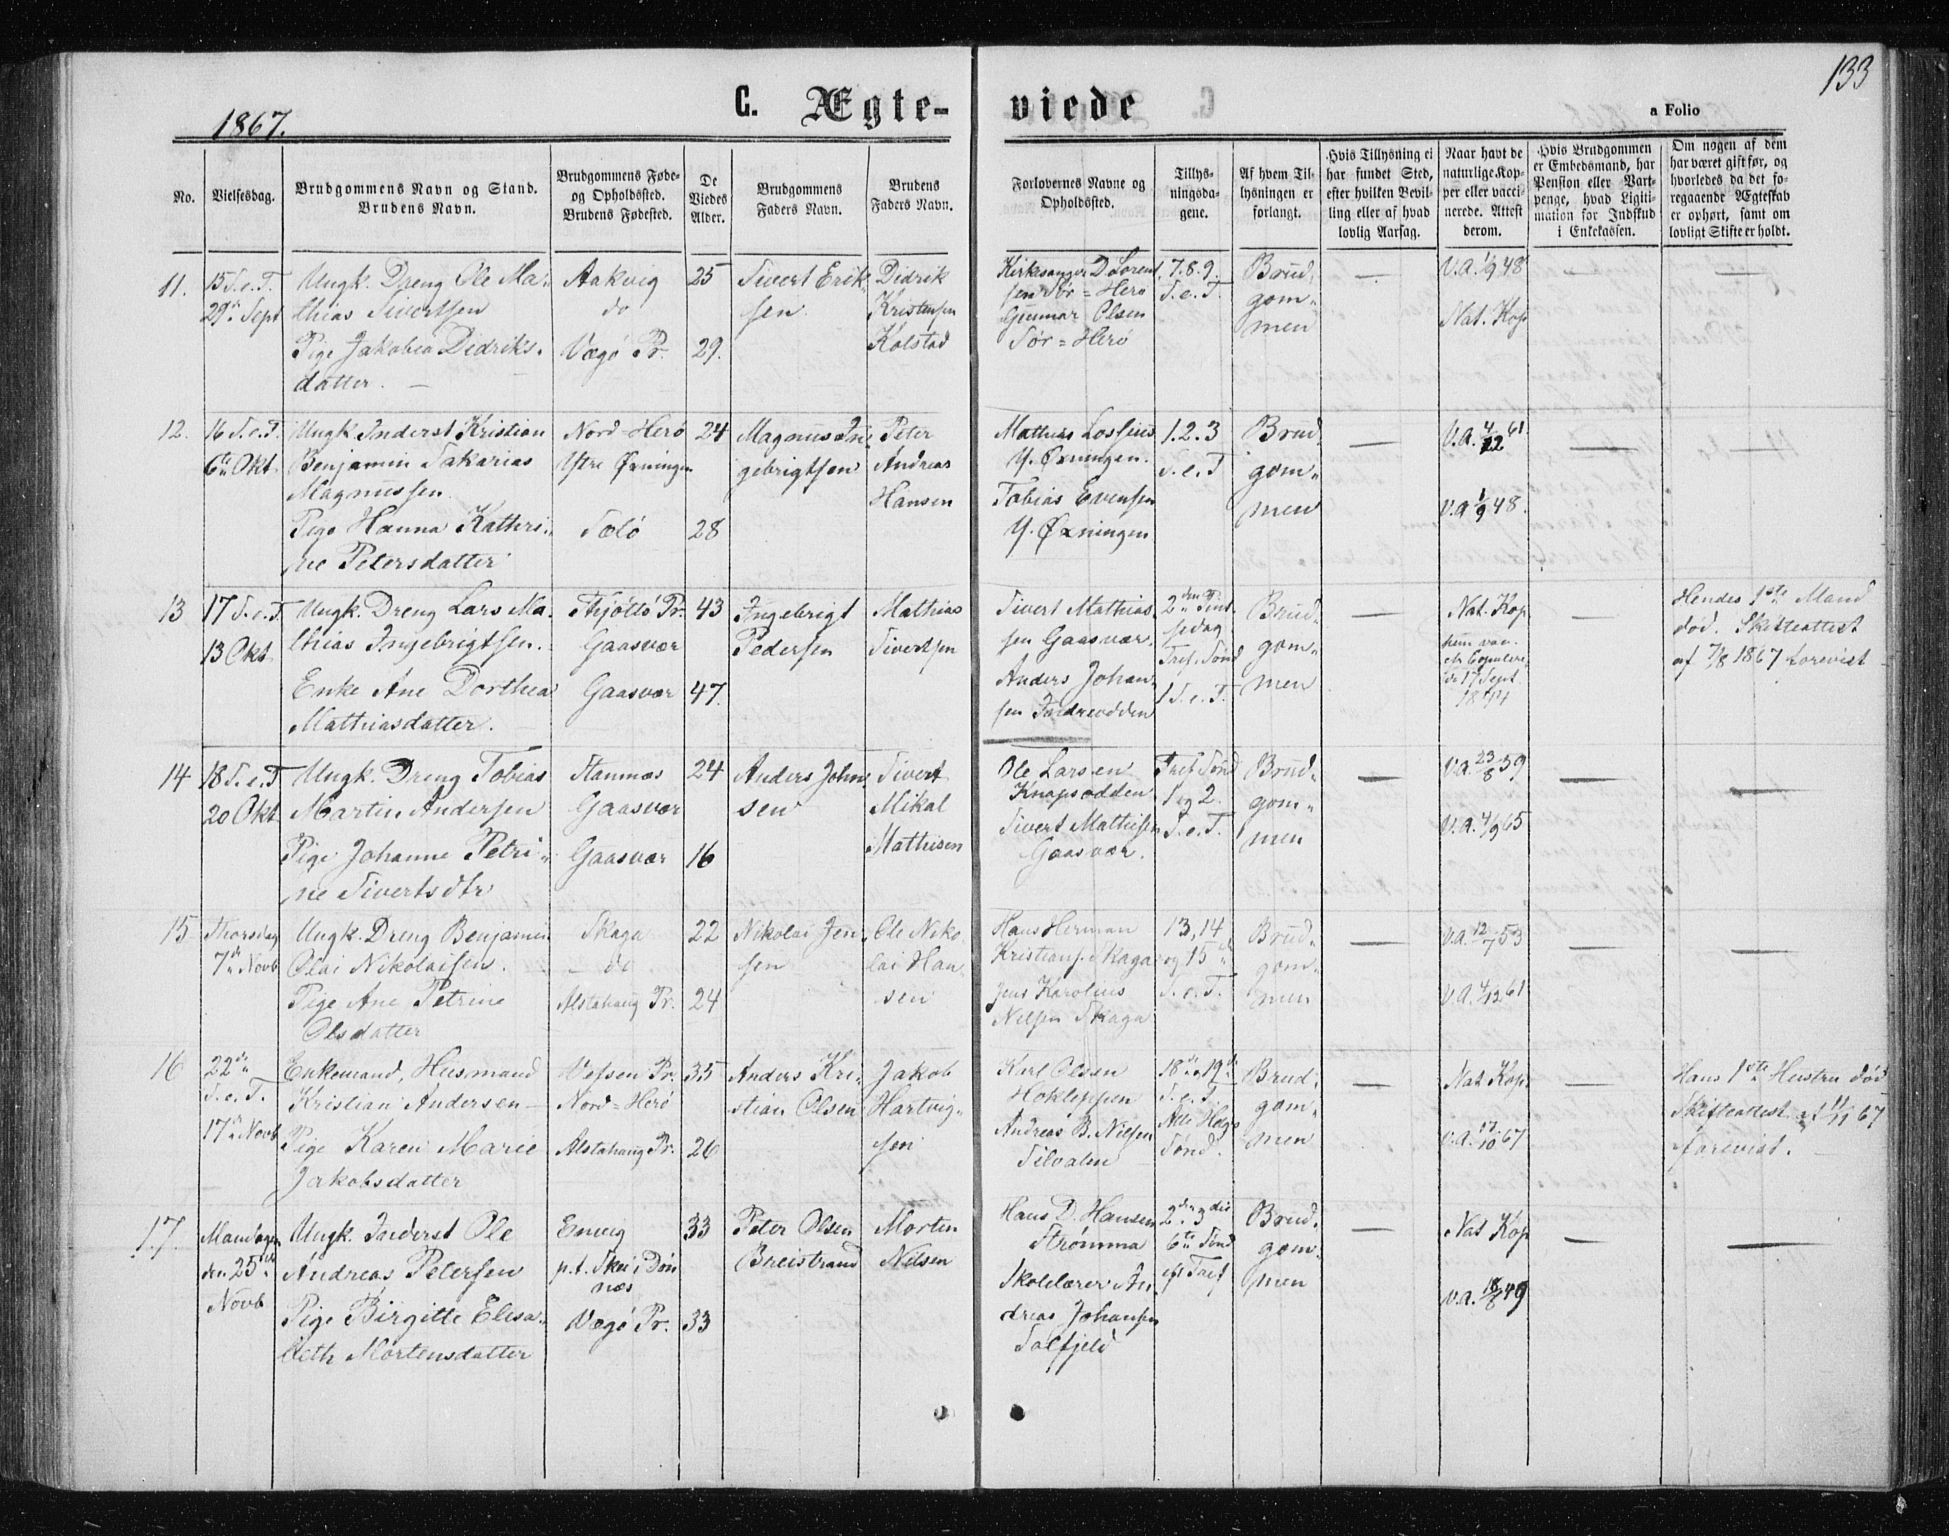 133
1867.
C. Ægte-
viede
a Folio
No.
Vielsesdag.
Brudgommens Navn og Stand.
Brudens Navn.
Brudgommens Føde-
og Opholdssted.
Brudens Fødested.
De
Viedes
Alder.
Brudgommens
Faders Navn.
Brudens
Faders Navn.
Forlovernes Navne og
Opholdssted.
Tillys-
ningsda-
gene.
Af hvem Til-
lysningen er
forlangt.
Hvis Tillysning ei
har fundet Sted,
efter hvilken Bevil-
ling eller af hvad
lovlig Aarsag.
Naar havt de
naturlige Kop-
per eller vacci-
nerede. Attest
derom.
Hvis Brudgommen
er Embedsmand, har
Pension eller Vart-
penge, hvad Ligiti-
mation for Indskud
i Enkekassen.
Om nogen af dem
har været gift før, og
hvorledes da det fo-
regaaende Ægteskab
er ophørt, samt om
lovligt Skifte er holdt.
11.
15 S. e. T.
29de Sept
Ungk. Dreng Ole Ma-
thias Sivertsen
Pige Jakobea Didriks-
datter.
Aakvig
do
Vegø Pr.
25
29.
Sivert Erik-
sen
Didrik
Kristensen
Kolstad
Kirksanger D Lorent
sen Sør-Herø
Gunnar Olsen
Sør-Herø
7. 8. 9.
S. e. T.
Brud-
gom-
men
V.A. 1/9 48
Nat. Kop
12.
16 S. e. T.
6te Okt.
Ungk. Inderst Kristian
Benjamin Sakarias
Magnussen
Pige Hanna Kathri-
ne Petersdatter
Nord-Herø
Ytre Øxningen
Sælø
24
28
Magnus In-
gebrigtsen
Peter
Andreas
Hansen
Mathias Lossius
Y. Øxningen.
Tobias Evensen
Y. Øxningen
1. 2. 3
S. e. T
Brud-
gom-
men
V.A. 4/12 61
V.A. 1/9 48.
13
17 S. e. T.
13 Okt.
Ungk. Dreng Lars Ma-
thias Ingebrigtsen.
Enke Ane Dorthea
Mathiasdatter.
Thjøttø Pr.
Gaasvær
Gaasvær
43
47.
Ingebrigt
Pedersen
Mathias
Sivertsen
Sivert Mathias-
sen Gaasvær.
Anders Johan-
sen Indreodden
2den Pint-
sedag
Tref. Sønd
1 S. e. T.
Brud-
gom-
men
Nat. Kop
17 Sept
Hendes 1ste Mand
død. Skifteattest
af 7/8 1867 forevist
14
18 S. e. T
20 Okt
Ungk. Dreng Tobias
Martin Andersen
Pige Johanne Petri-
ne Sivertsdtr
Stannæs
Gaasvær
Gaasvær
24
16
Anders John-
sen
Sivert
Mikal
Mathisen
Ole Larsen
Knapsodden
Sivert Mathisen
Gaasvær.
Tref. Sønd
1 og 2.
S. e. T.
Brud-
gom-
men
V.A. 23/8 39
V.A. 4/9 65
15
Thorsdag
7de Novb
Ungk. Dreng Benjamin
Olai Nikolaisen.
Pige Ane Petrine
Olsdatter
Skaga
do
Alstahaug Pr.
22
24
Nikolai Jen-
sen
Ole Niko-
lai Han-
sen
Hans Herman
Kristians. Skaga
Jens Karolius
Nilsen Skaga
13, 14
og 15de
S. e. T.
Brud-
gom-
men
V.A. 12/7 53
V.A. 4/12 61
16
22de
S. e. T.
17de Novb
Enkemand, Husmand
Kristian Andersen
Pige Karen Marie
Jakobsdatter
Vefsen Pr.
Nord-Herø
Alstahaug Pr.
35
26
Anders Kri-
stian Olsen
Jakob
Hartvig-
sen
Karl Olsen
Hokleppen
Andreas B. Nilsen
Silvalen
18de, 19de
S. e. T.
Alle Helgs
Sønd.
Brud-
gom-
men
Nat. Kop
V.A. 17/10 67
Hans 1ste Hustru død
Skifteattest af 11/11 67
forevist.
17.
Mandagen
den 25de
Novb
Ungk. Inderst Ole
Andreas Petersen
Pige Birgitte Elisa-
beth Mortensdatter
Envug
p.t. Skei i Døn
næs
Vegø Pr.
33
33
Peter Olsen
Breistrand
Morten
Nilsen
Hans D. Hansen
Strømma
Skolelærer An-
dreas Johansen
Solfjeld
2den 3die
6te Sønd
ef. Tref
Brud-
gom-
men
Nat Kop
V.A. 18/8 49